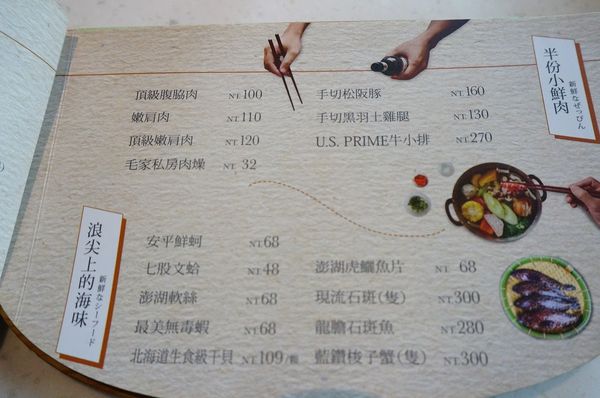 半份小鮮肉
新鮮なぜっぴん
頂級腹脇肉 NT.100
嫩肩肉 NT.110
頂級嫩肩肉 NT.120
毛家私房肉燥 NT. 32
手切松阪豚 NT.160
手切黑羽土雞腿 NT.130
U.S. PRIME牛小排 NT.270
浪尖上的海味
新鮮なシーフード
安平鮮蚵 NT.68
七股文蛤 NT.48
澎湖軟絲 NT.68
最美無毒蝦 NT.68
北海道生食級干貝 NT.109/顆
澎湖虎鱺魚片 NT. 68
現流石斑(隻) NT.300
龍膽石斑魚 NT.280
藍鑽梭子蟹(隻) NT.300